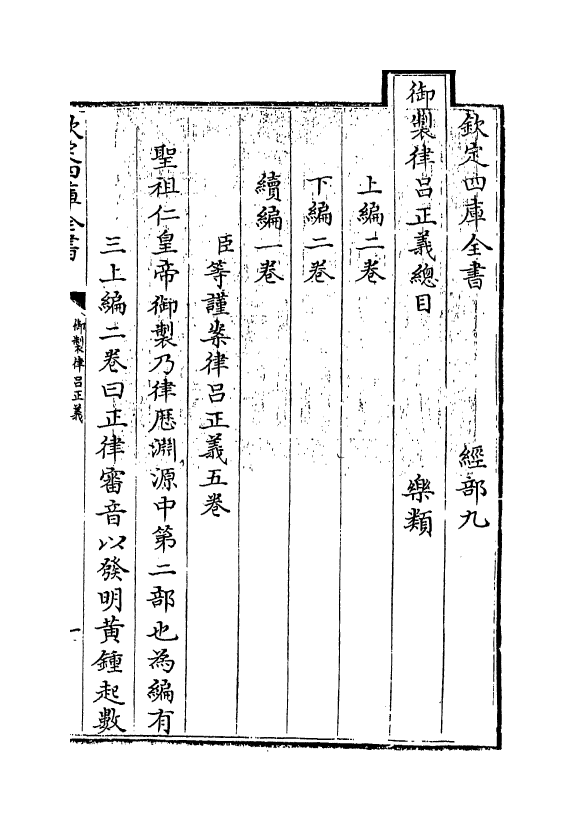 欽定四庫全書　經部九
御製律呂正義總目　樂類
上編二卷
下編二卷
續編一卷
臣等謹案律呂正義五卷
聖祖仁皇帝御製乃律厯淵源中第二部也為編有
三上編二卷曰正律審音以發明黄鍾起數
欽定四庫全書
御製律呂正義
一